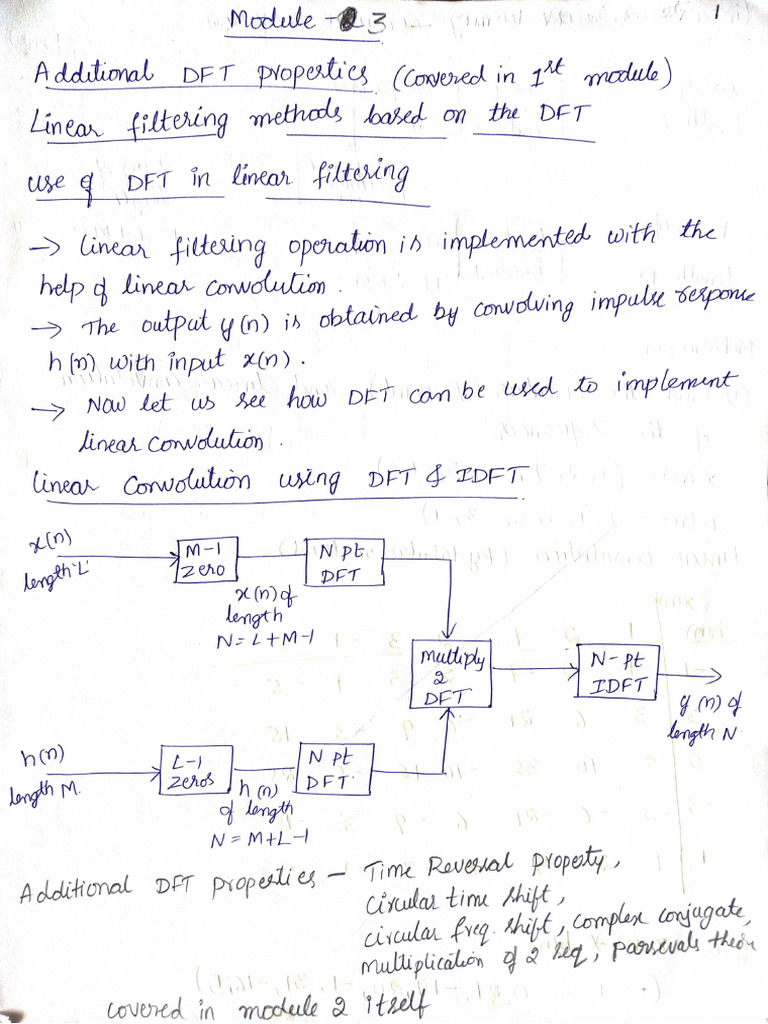 Module - 3
1
Additional DFT properties (Covered in 1st module)
Linear filtering methods based on the DFT
use of DFT in linear filtering
→ Linear filtering operation is implemented with the
help of linear convolution.
→ The output y(n) is obtained by convolving impulse response
h(n) with input x(n).
→ Now let us see how DFT can be used to implement
linear convolution.
Linear Convolution using DFT & IDFT
x(n)
length 'L'
M-1
zero
x(n) of
length
N = L+M-1
N pt
DFT
Multiply
2
DFT
N-pt
IDFT
y(n) of
length N.
h(n)
length M.
L-1
zeros
h(n)
of length
N = M+L-1
N pt
DFT.
Additional DFT properties - Time Reversal property,
circular time shift,
circular freq. shift, complex conjugate,
multiplication of 2 seq, parsevals
covered in module 2 itself